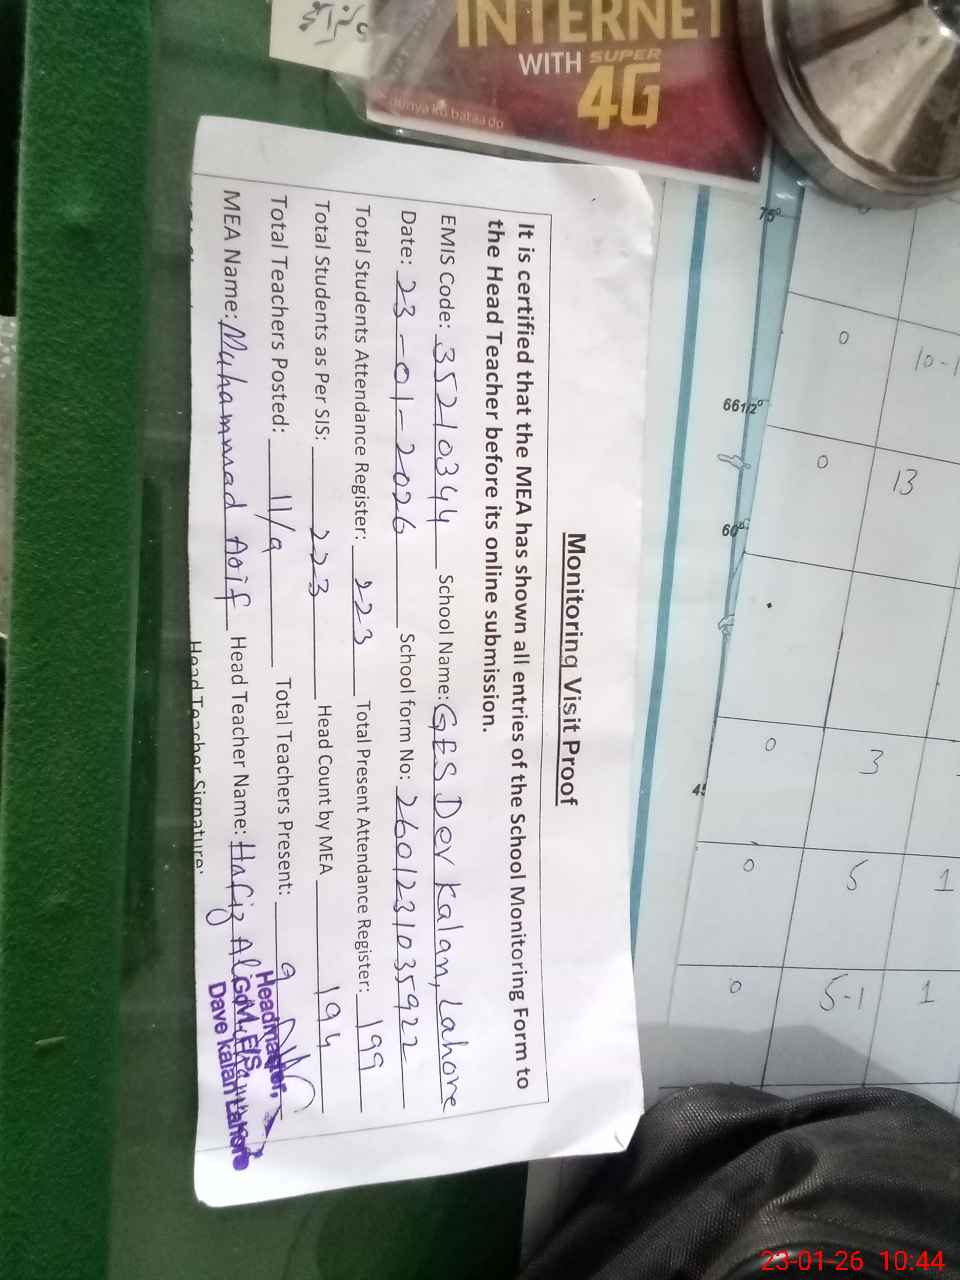 INTERNET
WITH SUPER
4G
dunya ko bataa do
Monitoring Visit Proof
It is certified that the MEA has shown all entries of the School Monitoring Form to
the Head Teacher before its online submission.
EMIS Code: 35210344 School Name: GES Dev Kalan, Lahore
Date: 23-01-2026 School form No: 2601231035922
Total Students Attendance Register: 223 Total Present Attendance Register: 199
Total Students as Per SIS: 223 Head Count by MEA 194
Total Teachers Posted: 11/9 Total Teachers Present: 9
MEA Name: Muhammad Asif Head Teacher Name: Hafiz Ali
Head Teacher Signature:
Headmaster,
Govt. M. E/S
Dave kalan Lahore
75°
0 10-1
66 1/2°
0 13
60°
0 3
45
0 5 1
0 5-1 1
23-01-26 10:44